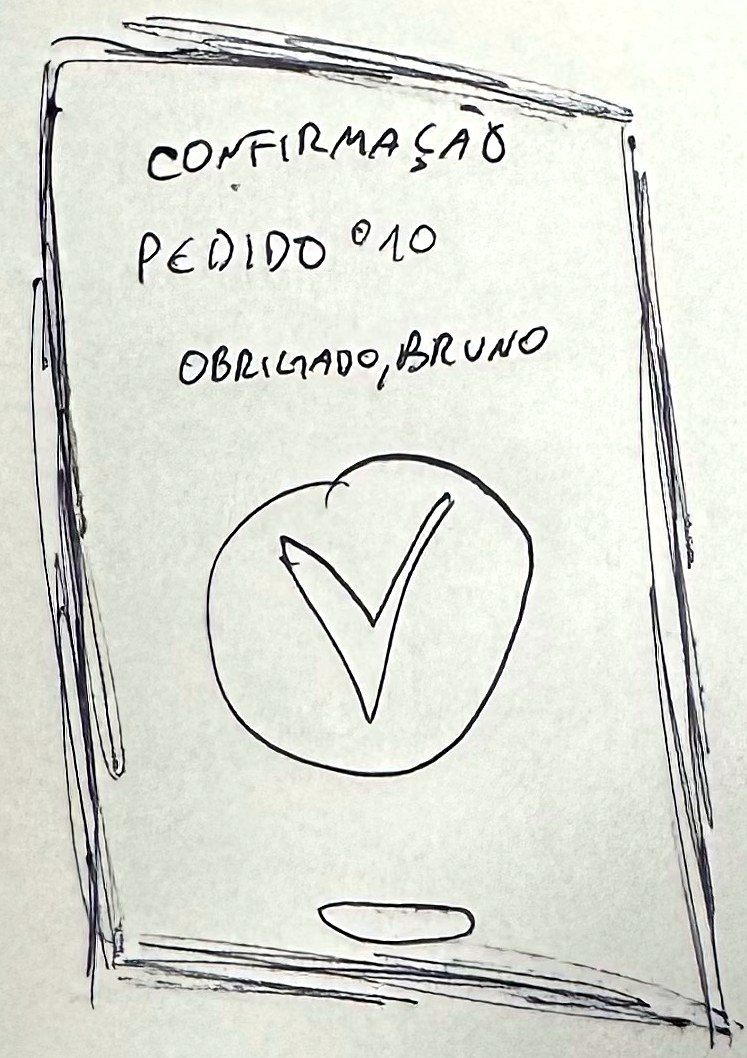 CONFIRMAÇÃO
PEDIDO º10
OBRIGADO, BRUNO